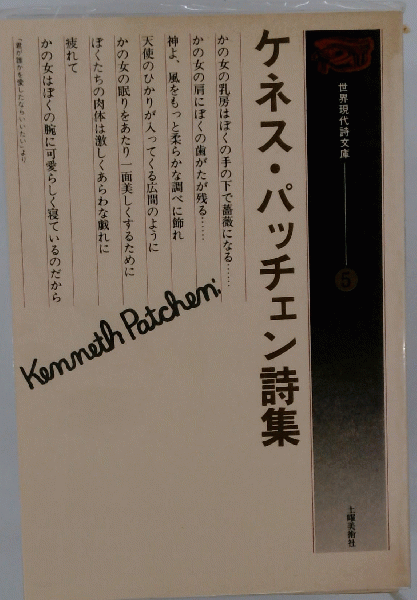 世界現代詩文庫
5
土曜美術社
ケネス・パッチェン詩集
かの女の乳房はぼくの手の下で薔薇になる……
かの女の肩にぼくの歯がたが残る……
神よ、風をもっと柔らかな調べに飾れ
天使のひかりが入ってくる広間のように
かの女の眠りをあたり一面美しくするために
ぼくたちの肉体は激しくあらわな戯れに
疲れて
かの女はぼくの腕に可愛らしく寝ているのだから
「君が誰かを愛したならいいたい」より
Kenneth Patchen